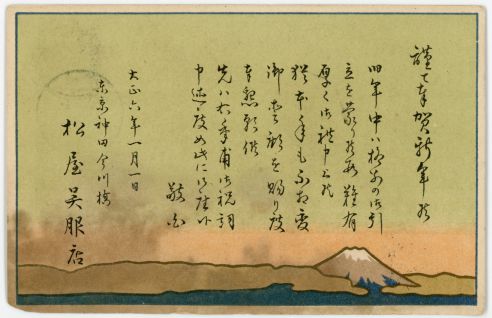 謹て奉賀新年候
旧年中ハ格別の御引
立を蒙り候段難有
厚く御礼申上候
猶本年も不相変
御愛顧を賜り度
奉懇願候
先ハ右年甫御祝詞
申述度如此に御座候
敬白
大正六年一月一日
東京神田今川橋
松屋呉服店